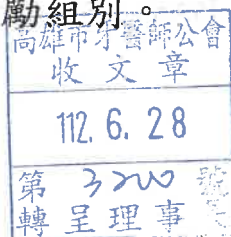 勵組別。
高雄市牙醫師公會
收文章
112. 6. 28
第 3200 號
轉呈理事